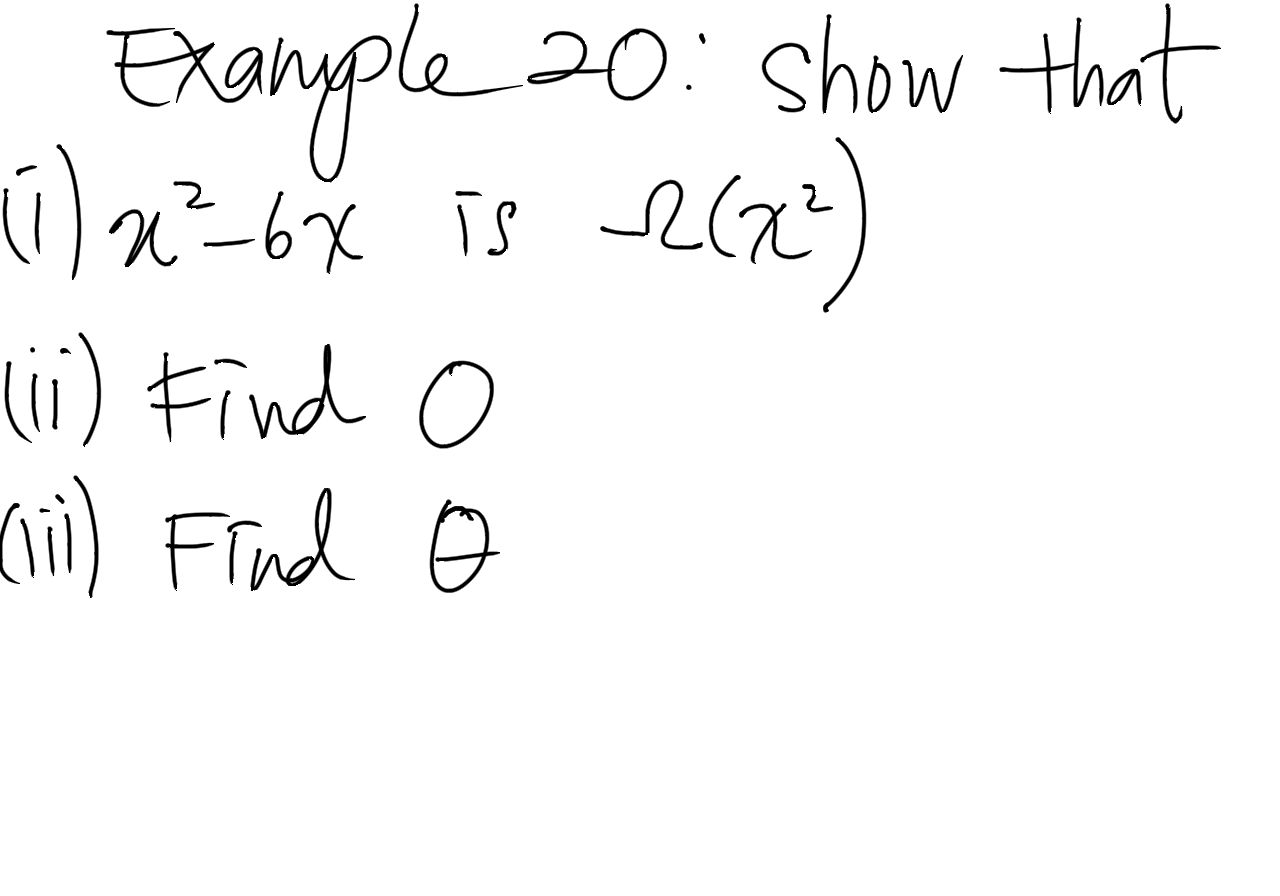 Example 20: show that
(i) x²-6x is Ω(x²)
(ii) Find O
(iii) Find θ